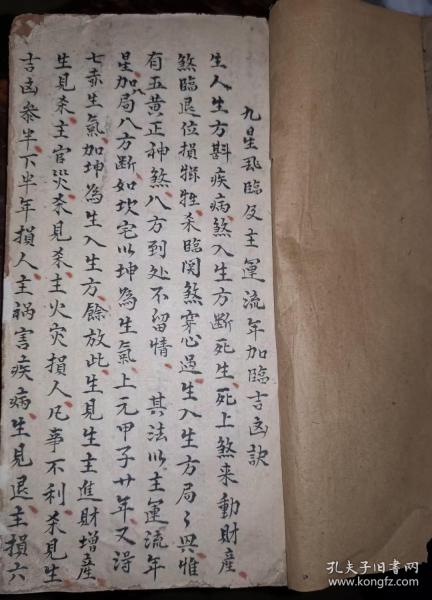 九星飛臨及主運流年加臨吉凶訣
生人生方斟疾病煞入生方斷死生死上煞来動財產
煞臨退位損牲杀臨関煞穿心過生入生方局々興惟
有五黄正神煞八方到处不留情 其法以主運流年
星加局八方断如坎宅以坤為生氣上元甲子廿年又得
七赤生氣加坤為生入生方餘放此生見生主進財增產
生見杀主官災杀見杀主火灾損人凡事不利杀見生
吉凶参半下半年損人主禍害疾病生見退主損六
孔夫子旧书网
www.kongfz.com